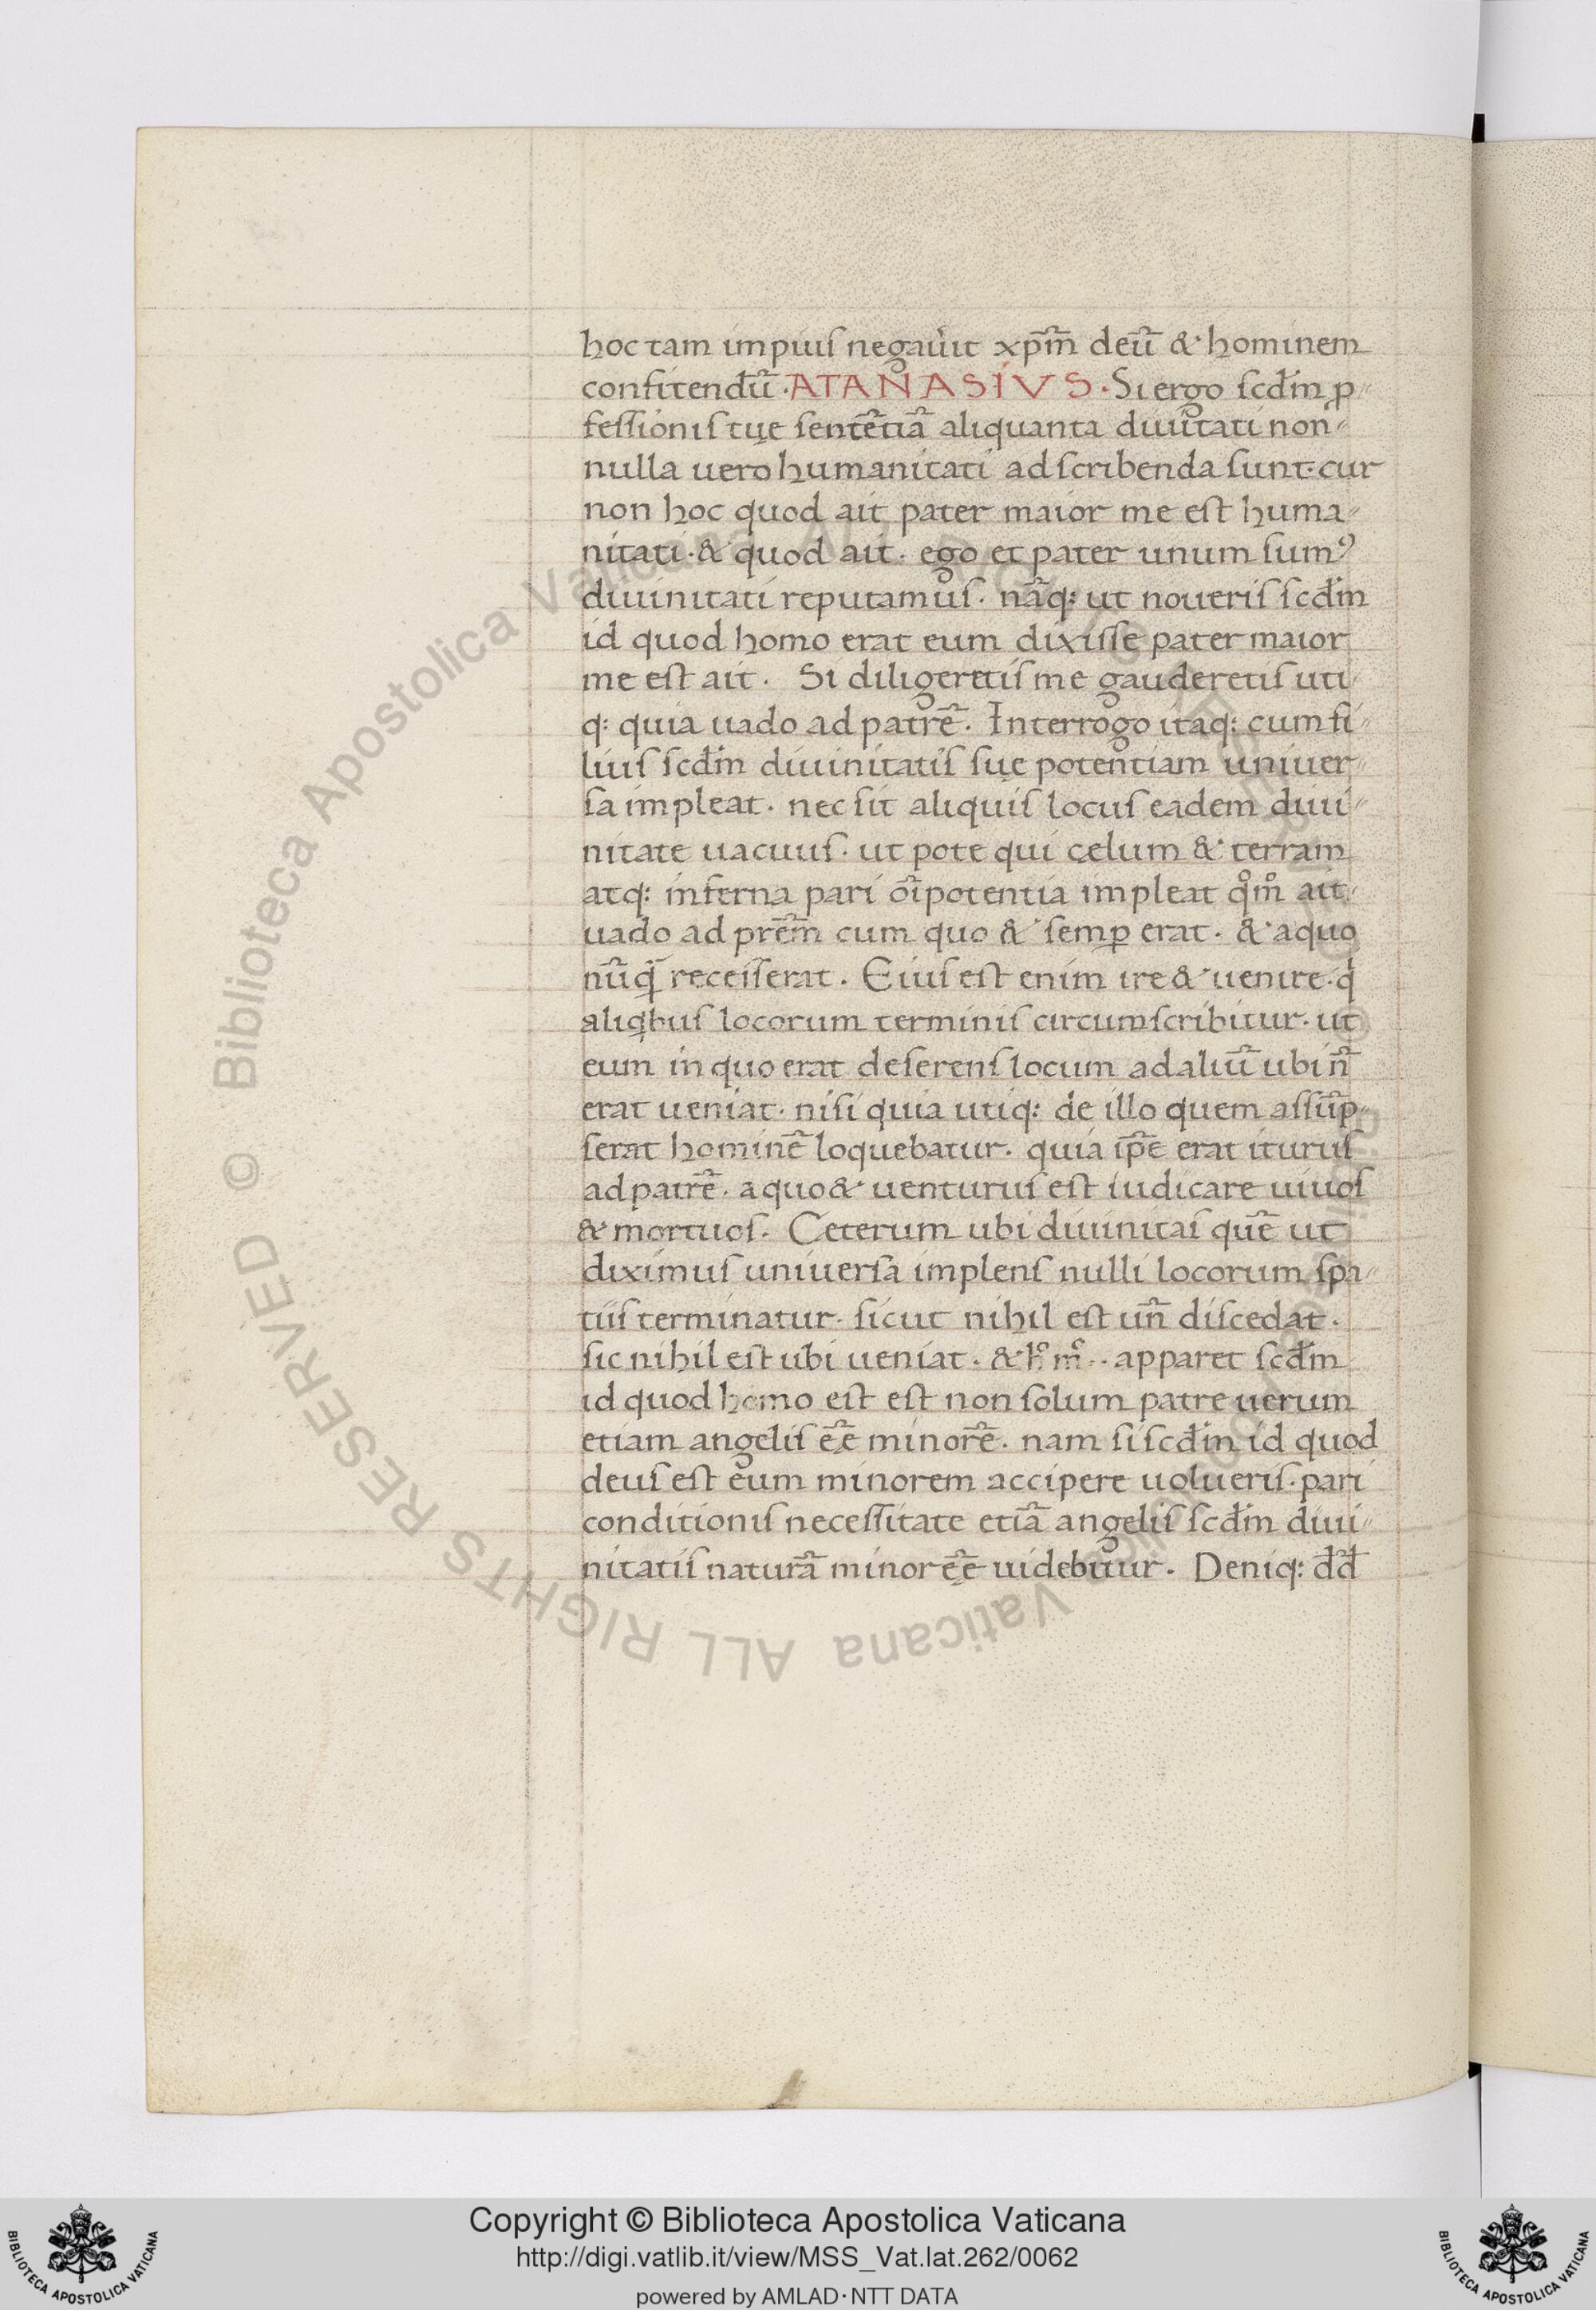 hoc tam impius negaúit xp̄m̄ deū & hominem
confitendū · ATANASIVS · Si ergo scd̄m ꝓ
fessionis tuę sentētiā aliquanta diuītati non
nulla uero humanitati adscribenda sunt · cur
non hoc quod ait pater maior me est huma
nitati · & quod ait · ego et pater unum sumꝰ
diuinitati reputamus · nāq: ut noueris scd̄m
id quod homo erat eum dixisse pater maior
me est ait · Si diligeretis me gauderetis uti
q: quia uado ad patrē · Interrogo itaq: cum fi
lius scd̄m diuinitatis suę potentiam uniuer
sa impleat · nec sit aliquis locus eadem diui
nitate uacuus · ut pote qui cęlum & terram
atq: inferna pari oīpotentia impleat qͦmͦ ait
uado ad prēm̄ cum quo & semꝑ erat · & a quo
nūq̄ recesserat · Eius est enim ire & uenire · qⁱ
aliqbus locorum terminis circumscribitur · ut
eum in quo erat deserens locum ad aliū ubi n̄
erat ueniat · nisi quia utiq: de illo quem assūp
serat hominē loquebatur · quia ip̄e erat iturus
ad patrē · a quo & uenturus est iudicare uiuos
& mortuos · Ceterum ubi diuinitas quę̄ ut
diximus uniuersa implens nulli locorum spa
tiis terminatur · sicut nihil est un̄ discedat ·
sic nihil est ubi ueniat · & hͦ mͦ · apparet scd̄m
id quod homo est est non solum patre uerum
etiam angelis ēē minorē · nam si scd̄m id quod
deus est eum minorem accipere uolueris · pari
conditionis necessitate etiā angelis scd̄m diui
nitatis naturā minor ēē uidebitur · Deniq: dd̄
Biblioteca Apostolica Vaticana ALL RIGHTS RESERVED ©
Copyright © Biblioteca Apostolica Vaticana
http://digi.vatlib.it/view/MSS_Vat.lat.262/0062
powered by AMLAD·NTT DATA
BIBLIOTECA APOSTOLICA VATICANA
BIBLIOTECA APOSTOLICA VATICANA